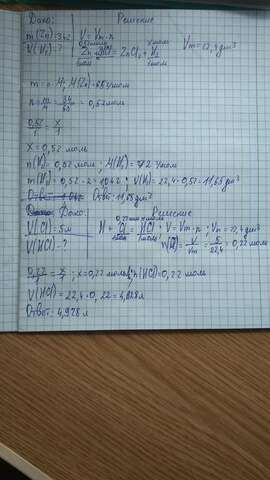 Дано: Решение
m(Zn)=34г V=Vm·n
V(H₂)-? Zn ZnCl₂ + H₂ Vm=22,4дм³
1моль 1моль
m=n·M; M(Zn)=65г/моль
n=m/M=34/65=0,52моль
0,52/1=x/1
x=0,52 моль
n(H₂)=0,52 моль; M(H₂)=2 г/моль
m(H₂)=0,52·2=1,04г; V(H₂)=22,4·0,52=11,65дм³
Ответ: 11,65дм³
Дано: Решение
V(Cl)=5л H + Cl = HCl; V=Vm·n; Vm=22,4дм³
V(HCl)-? n()=V/Vm=5/22,4=0,22 моль
0,22/=x/; x=0,22 моль n(HCl)=0,22 моль
V(HCl)=22,4·0,22=4,928л
Ответ: 4,928л